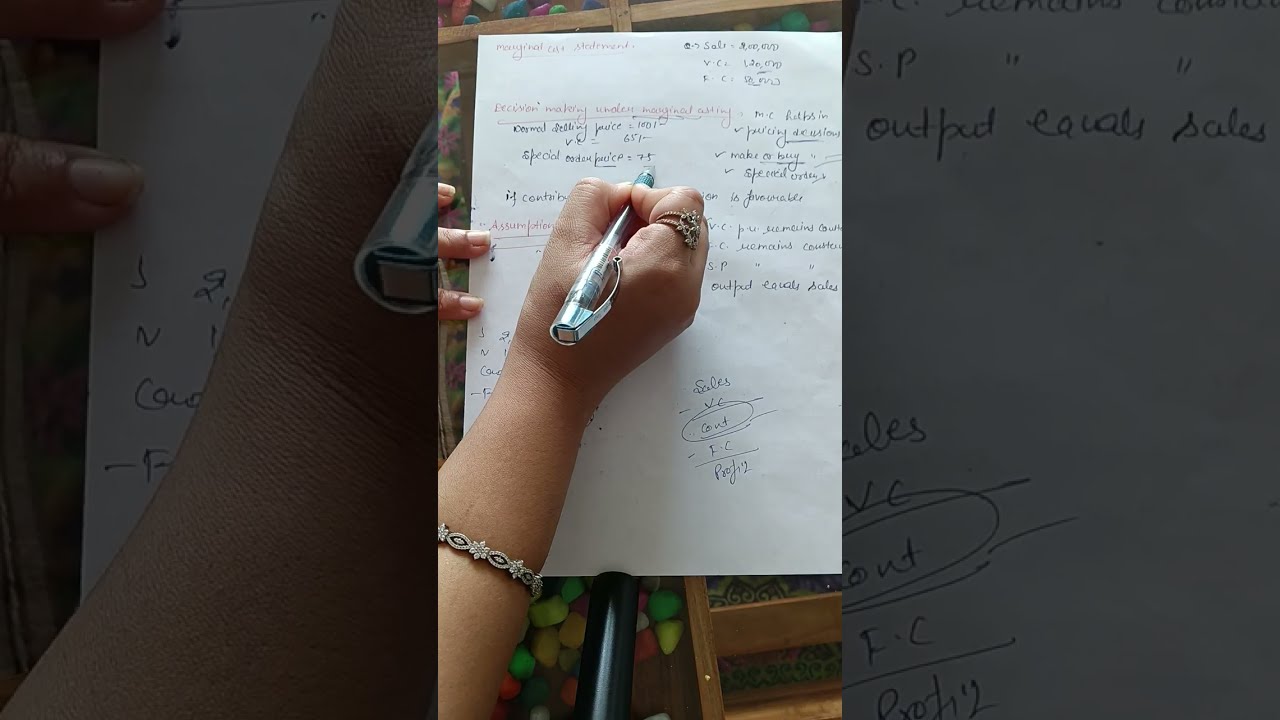 Marginal cost statement.
Q → Sale = 2,00,000
V.C = 1,20,000
F.C = 50,000
Decision making under marginal costing :
Normal selling price = 100/-
V.C = 65/-
Special order price = 75
M.C helps in
✓ pricing decisions
✓ make or buy "
✓ special orders
if contrib
ion is favourable
Assumption
V.C. p.u. remains const
C. remains constan
S.P " "
output equals sales
S 2,
V 1
Con
- F
Sales
- VC
Cont
- F.C
Profit